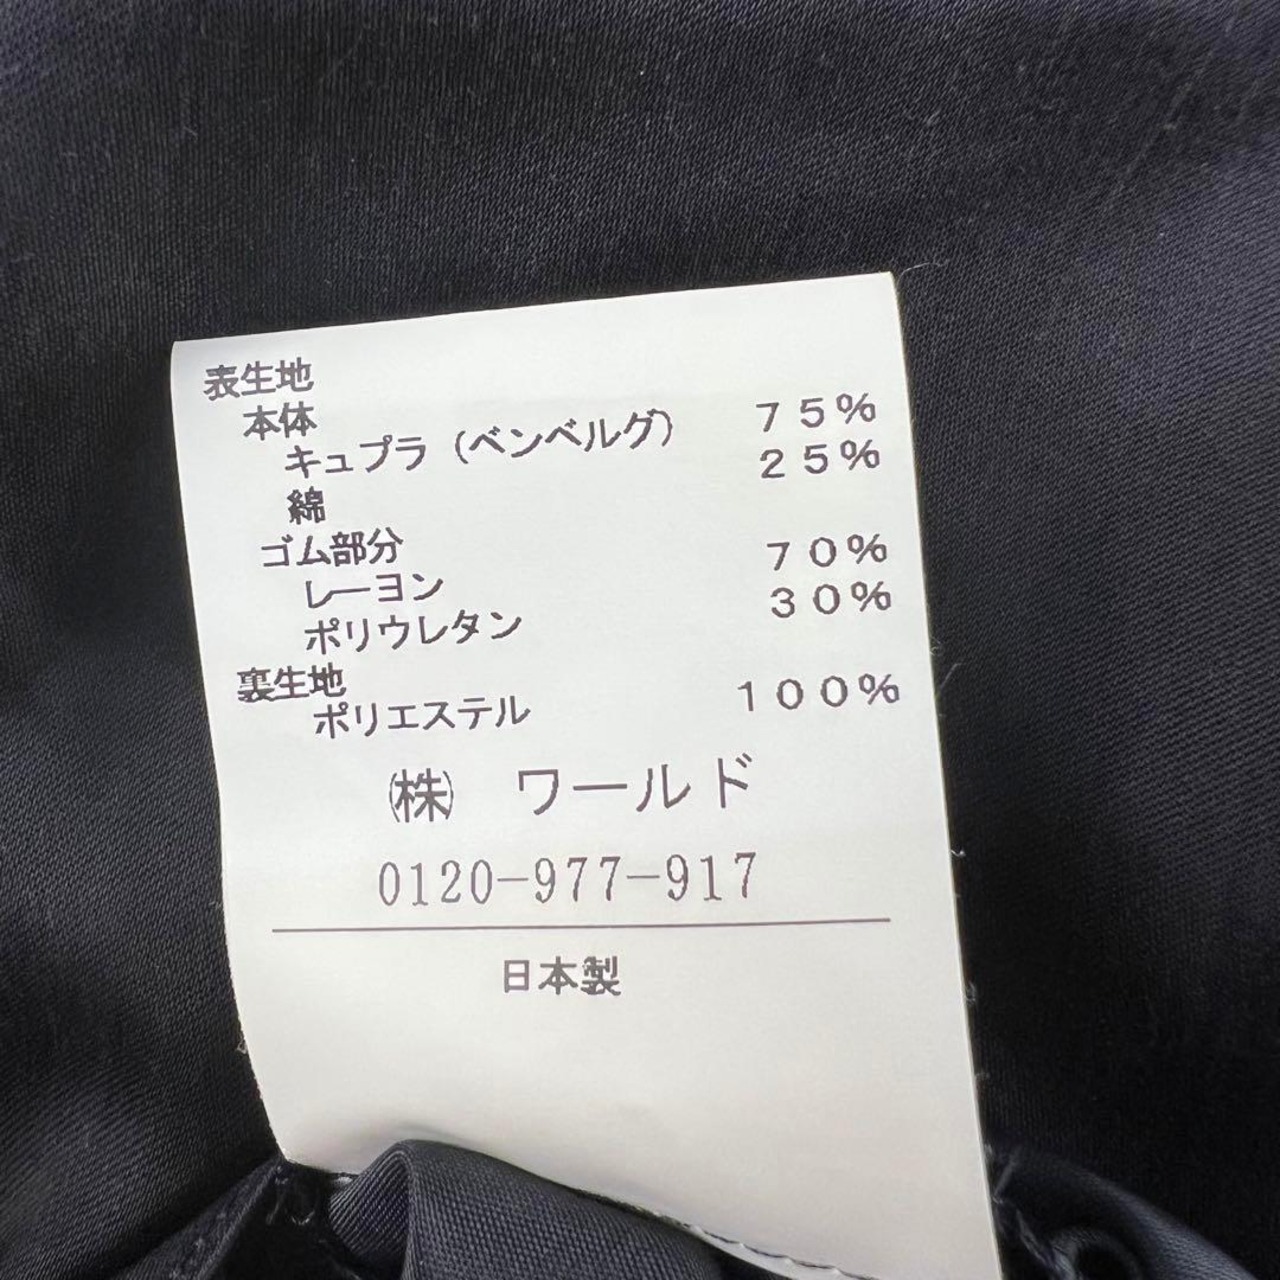 表生地
本体
キュプラ（ベンベルグ） 75%
綿 25%
ゴム部分
レーヨン 70%
ポリウレタン 30%
裏生地
ポリエステル 100%
㈱ ワールド
0120-977-917
日本製